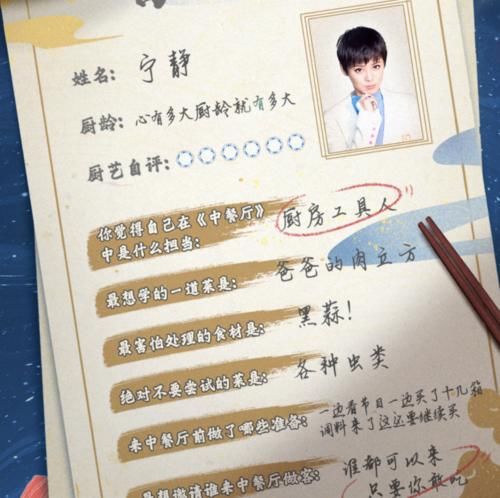 姓名: 宁静
厨龄: 心有多大厨龄就有多大
厨艺自评:
你觉得自己在《中餐厅》
中是什么担当:
厨房工具人
最想学的一道菜是:
爸爸的肉立方
最害怕处理的食材是:
黑蒜!
绝对不要尝试的菜是:
各种虫类
来中餐厅前做了哪些准备:
一边看节目一边买了十几箱
调料来了这还要继续买
最想邀请谁来中餐厅做客:
谁都可以来
只要你敢吃